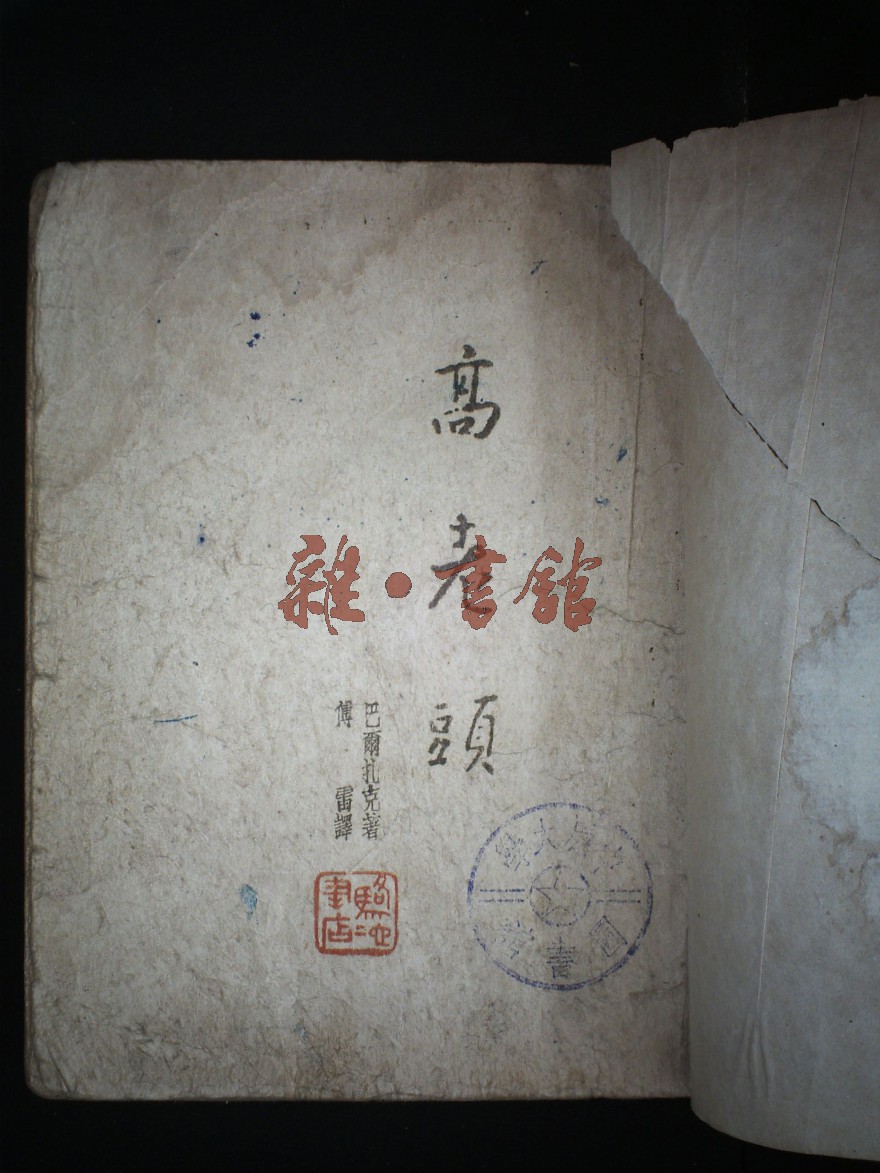 高老頭
雜·書館
巴爾扎克著
傅雷譯
駱駝書店
圖書館